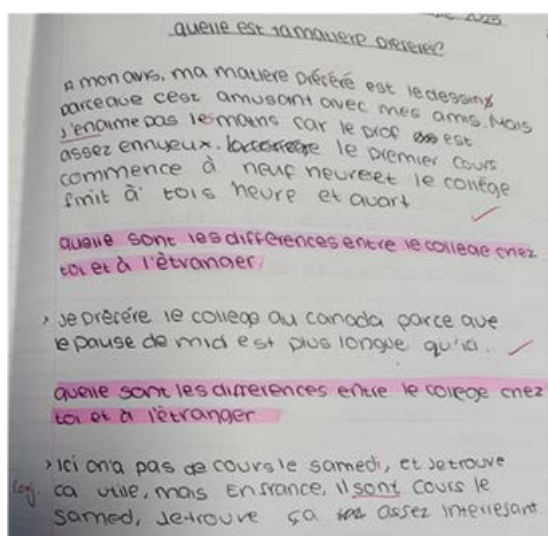 2025
quelle est ta matiere préféré?
à mon avis, ma matiere préféré est le dessins
parceque c'est amusant avec mes amis. Mais
j'enaime pas lesmaths car le prof est
assez ennuyeux. le premier cours
commence à neuf heureset le collège
finit à tois heure et quart
quelle sont les différences entre le college chez
toi et à l'étranger.
› Je préfére le college au canada parce que
le pause de mid est plus longue qu'ici.
quelle sont les differences entre le college chez
toi et à l'étranger
› ici on'a pas de cours le samedi, et Je trouve
Conj. ca utile, mais En france, il sont cours le
samed, Je trouve ça assez interresant